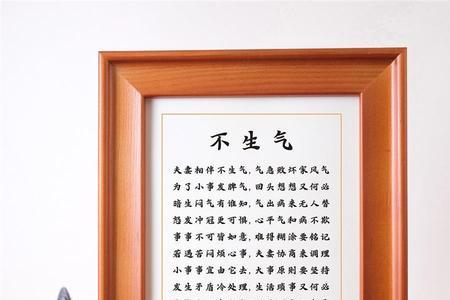 不生气
夫妻相伴不生气,气急败坏家风气
为了小事发脾气,回头想想又何必
暗生闷气有谁知,气出病来无人替
怒发冲冠更可惧,心平气和人不欺
事事不可皆如意,难得糊涂要铭记
若遇苦闷烦心事,夫妻协商来调理
小事事宜由它去,大事原则要坚持
发生矛盾冷处理,生活琐事